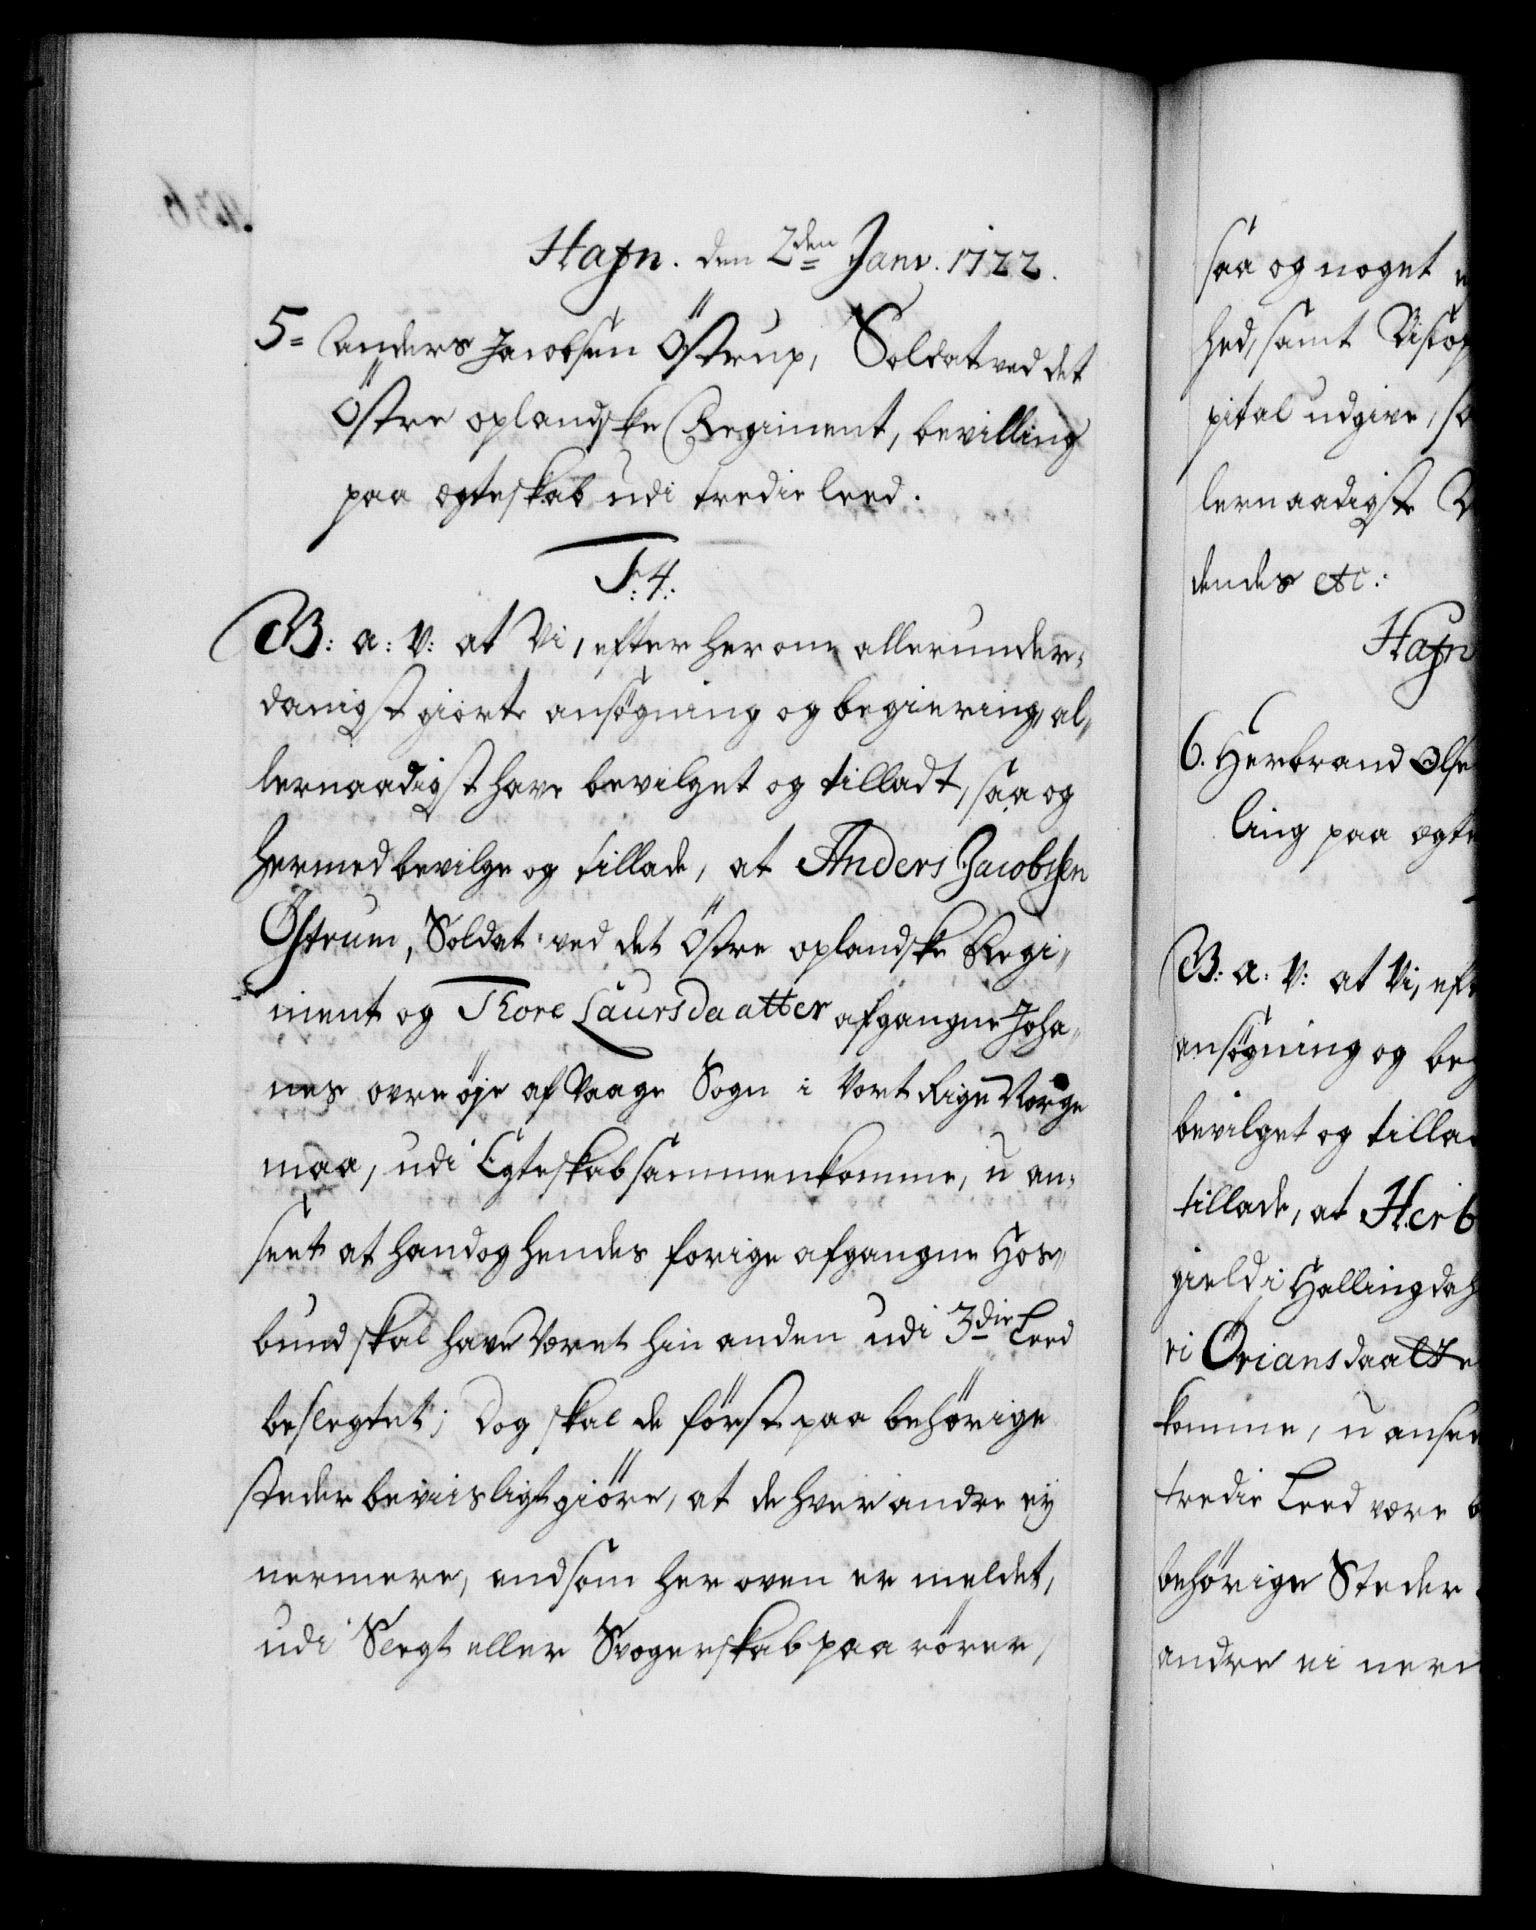 Hafn. den 2den Janv. 1722.
5= Anders Jacobsen Östrup, Soldat ved det
Östre oplandske Regiment, bevilling
paa ægteskab udi tredie leed.
F. 4.
G. B: a: V: at Vi, efter herom allerunder-
danigst giorte ansøgning og begiering, al-
lernaadigst have bevilget og tilladt, saa og
hermed bevilge og tillade, at Anders Jacobsen
Østrum, Soldat ved det Östre oplandske Regi-
ment og Thore Laursdaatter afgangne Joha-
nes ovre øje af Vaage Sogn i Vort Rige Norge
maa, udi Egteskab sammenkomme, u an-
seet at hand og hendes forige afgangne Hos-
bund skal have været hin anden udi 3die Leed
beslegtet; Dog skal de først paa behörige
steder beviisligt giöre, at de hver andre ey
nermere, end som her oven er meldet,
udi Slegt eller Svogerskab paa rörer,
saa og noget
hed, samt
pital udgive,
lernaadigste
dendes etc:
Hafn
6. Herbrand Olse
ling paa ægte
B: a: V: at Vi, eft
ansøgning og beg
bevilget og tilla
tillade, at Herb
gield i Hallingdah
ri Öriansdaatte
komme, u ansee
tredie Leed være b
behörige Steder
andre ei nerm